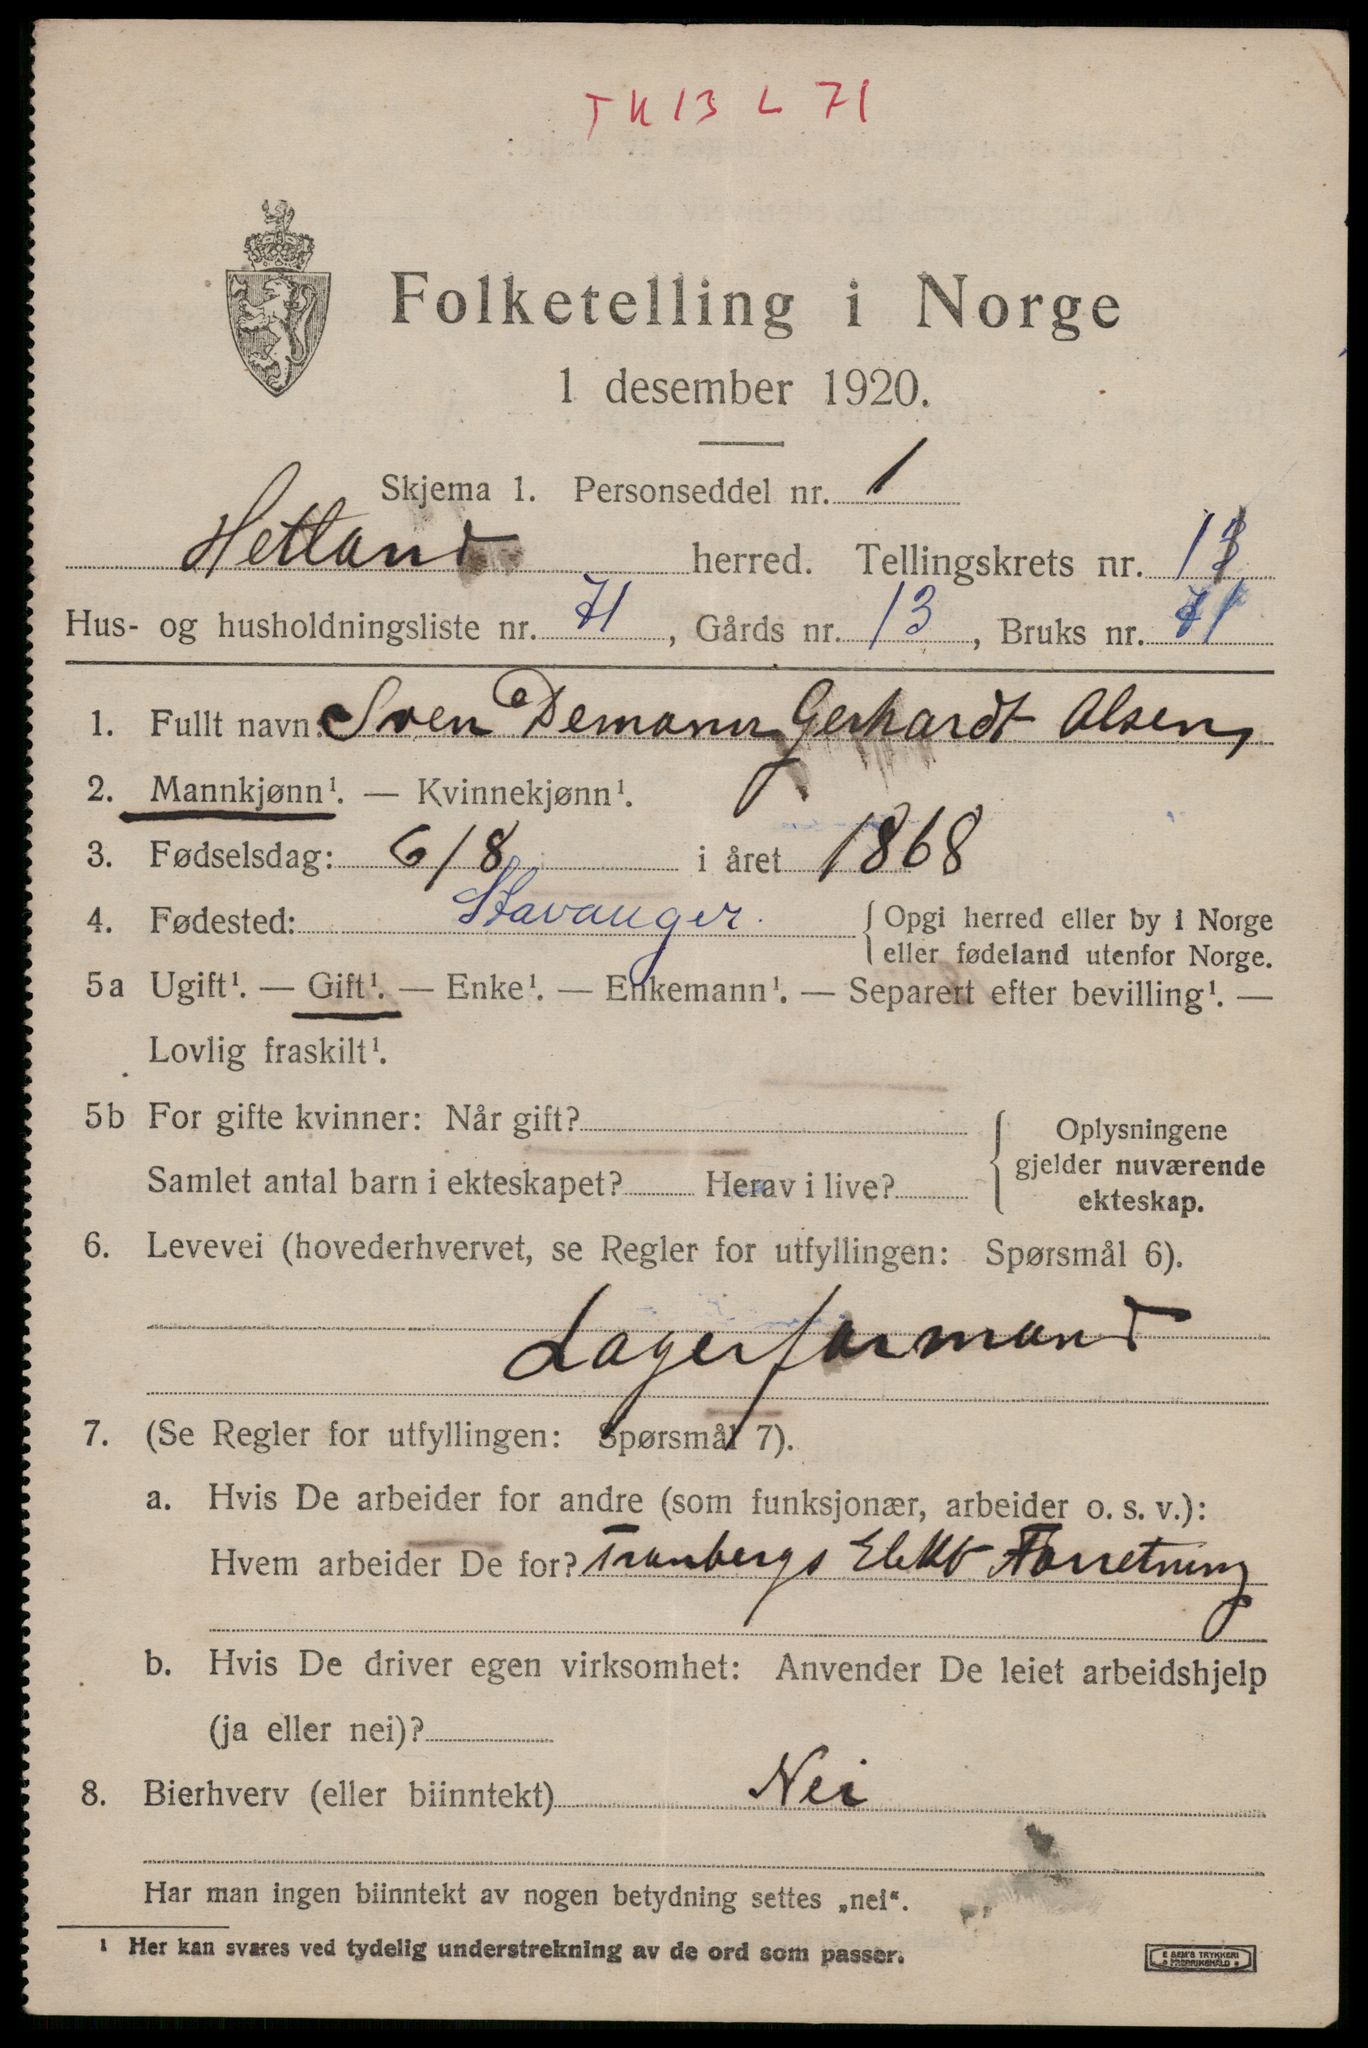 TK 13 L 71
Folketelling i Norge
1 desember 1920.
Skjema 1. Personseddel nr. 1
Hetland herred. Tellingskrets nr. 13
Hus- og husholdningsliste nr. 71, Gårds nr. 13, Bruks nr. 71
1. Fullt navn: Sven Demann Gerhardt Olsen,
2. Mannkjønn¹. — Kvinnekjønn¹.
3. Fødselsdag: 6/8 i året 1868
4. Fødested: Stavanger. { Opgi herred eller by i Norge
eller fødeland utenfor Norge.
5a Ugift¹. — Gift¹. — Enke¹. — Enkemann¹. — Separert efter bevilling¹. —
Lovlig fraskilt¹.
5b For gifte kvinner: Når gift?
Samlet antal barn i ekteskapet? Herav i live?
Oplysningene
gjelder nuværende
ekteskap.
6. Levevei (hovederhvervet, se Regler for utfyllingen: Spørsmål 6).
Lagerformand
7. (Se Regler for utfyllingen: Spørsmål 7).
a. Hvis De arbeider for andre (som funksjonær, arbeider o. s. v.):
Hvem arbeider De for? Tranbergs Elekt Forretning
b. Hvis De driver egen virksomhet: Anvender De leiet arbeidshjelp
(ja eller nei)?
8. Bierhverv (eller biinntekt) Nei
Har man ingen biinntekt av nogen betydning settes „nei“.
¹ Her kan svares ved tydelig understrekning av de ord som passer.
E SEM'S TRYKKERI
FREDRIKSHALD